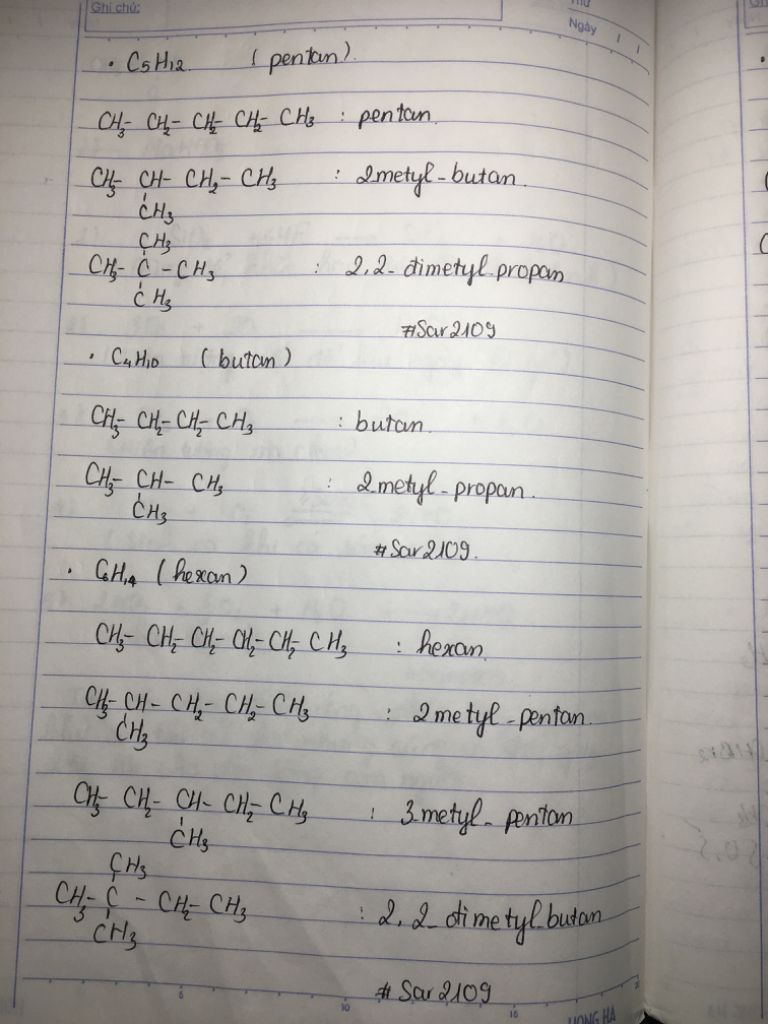 Ghi chú:
Thứ
Ngày / /
• C5H12 (pentan)
CH3- CH2- CH2- CH2- CH3 : pentan
CH3- CH- CH2- CH3 : 2metyl-butan
CH3
CH3
CH3- C -CH3 : 2,2-dimetyl propan
CH3
#Sar2109
• C4H10 (butan)
CH3- CH2-CH2-CH3 : butan
CH3- CH- CH3 : 2metyl-propan.
CH3
#Sar2109.
• C6H14 (hexan)
CH3- CH2-CH2-CH2-CH2- CH3 : hexan
CH3-CH- CH2- CH2-CH3 : 2metyl-pentan.
CH3
CH3- CH2- CH- CH2-CH3 : 3.metyl- pentan
CH3
CH3
CH3- C - CH2-CH3 : 2,2-dimetyl-butan
CH3
#Sar2109
5 10 15
HONG HA